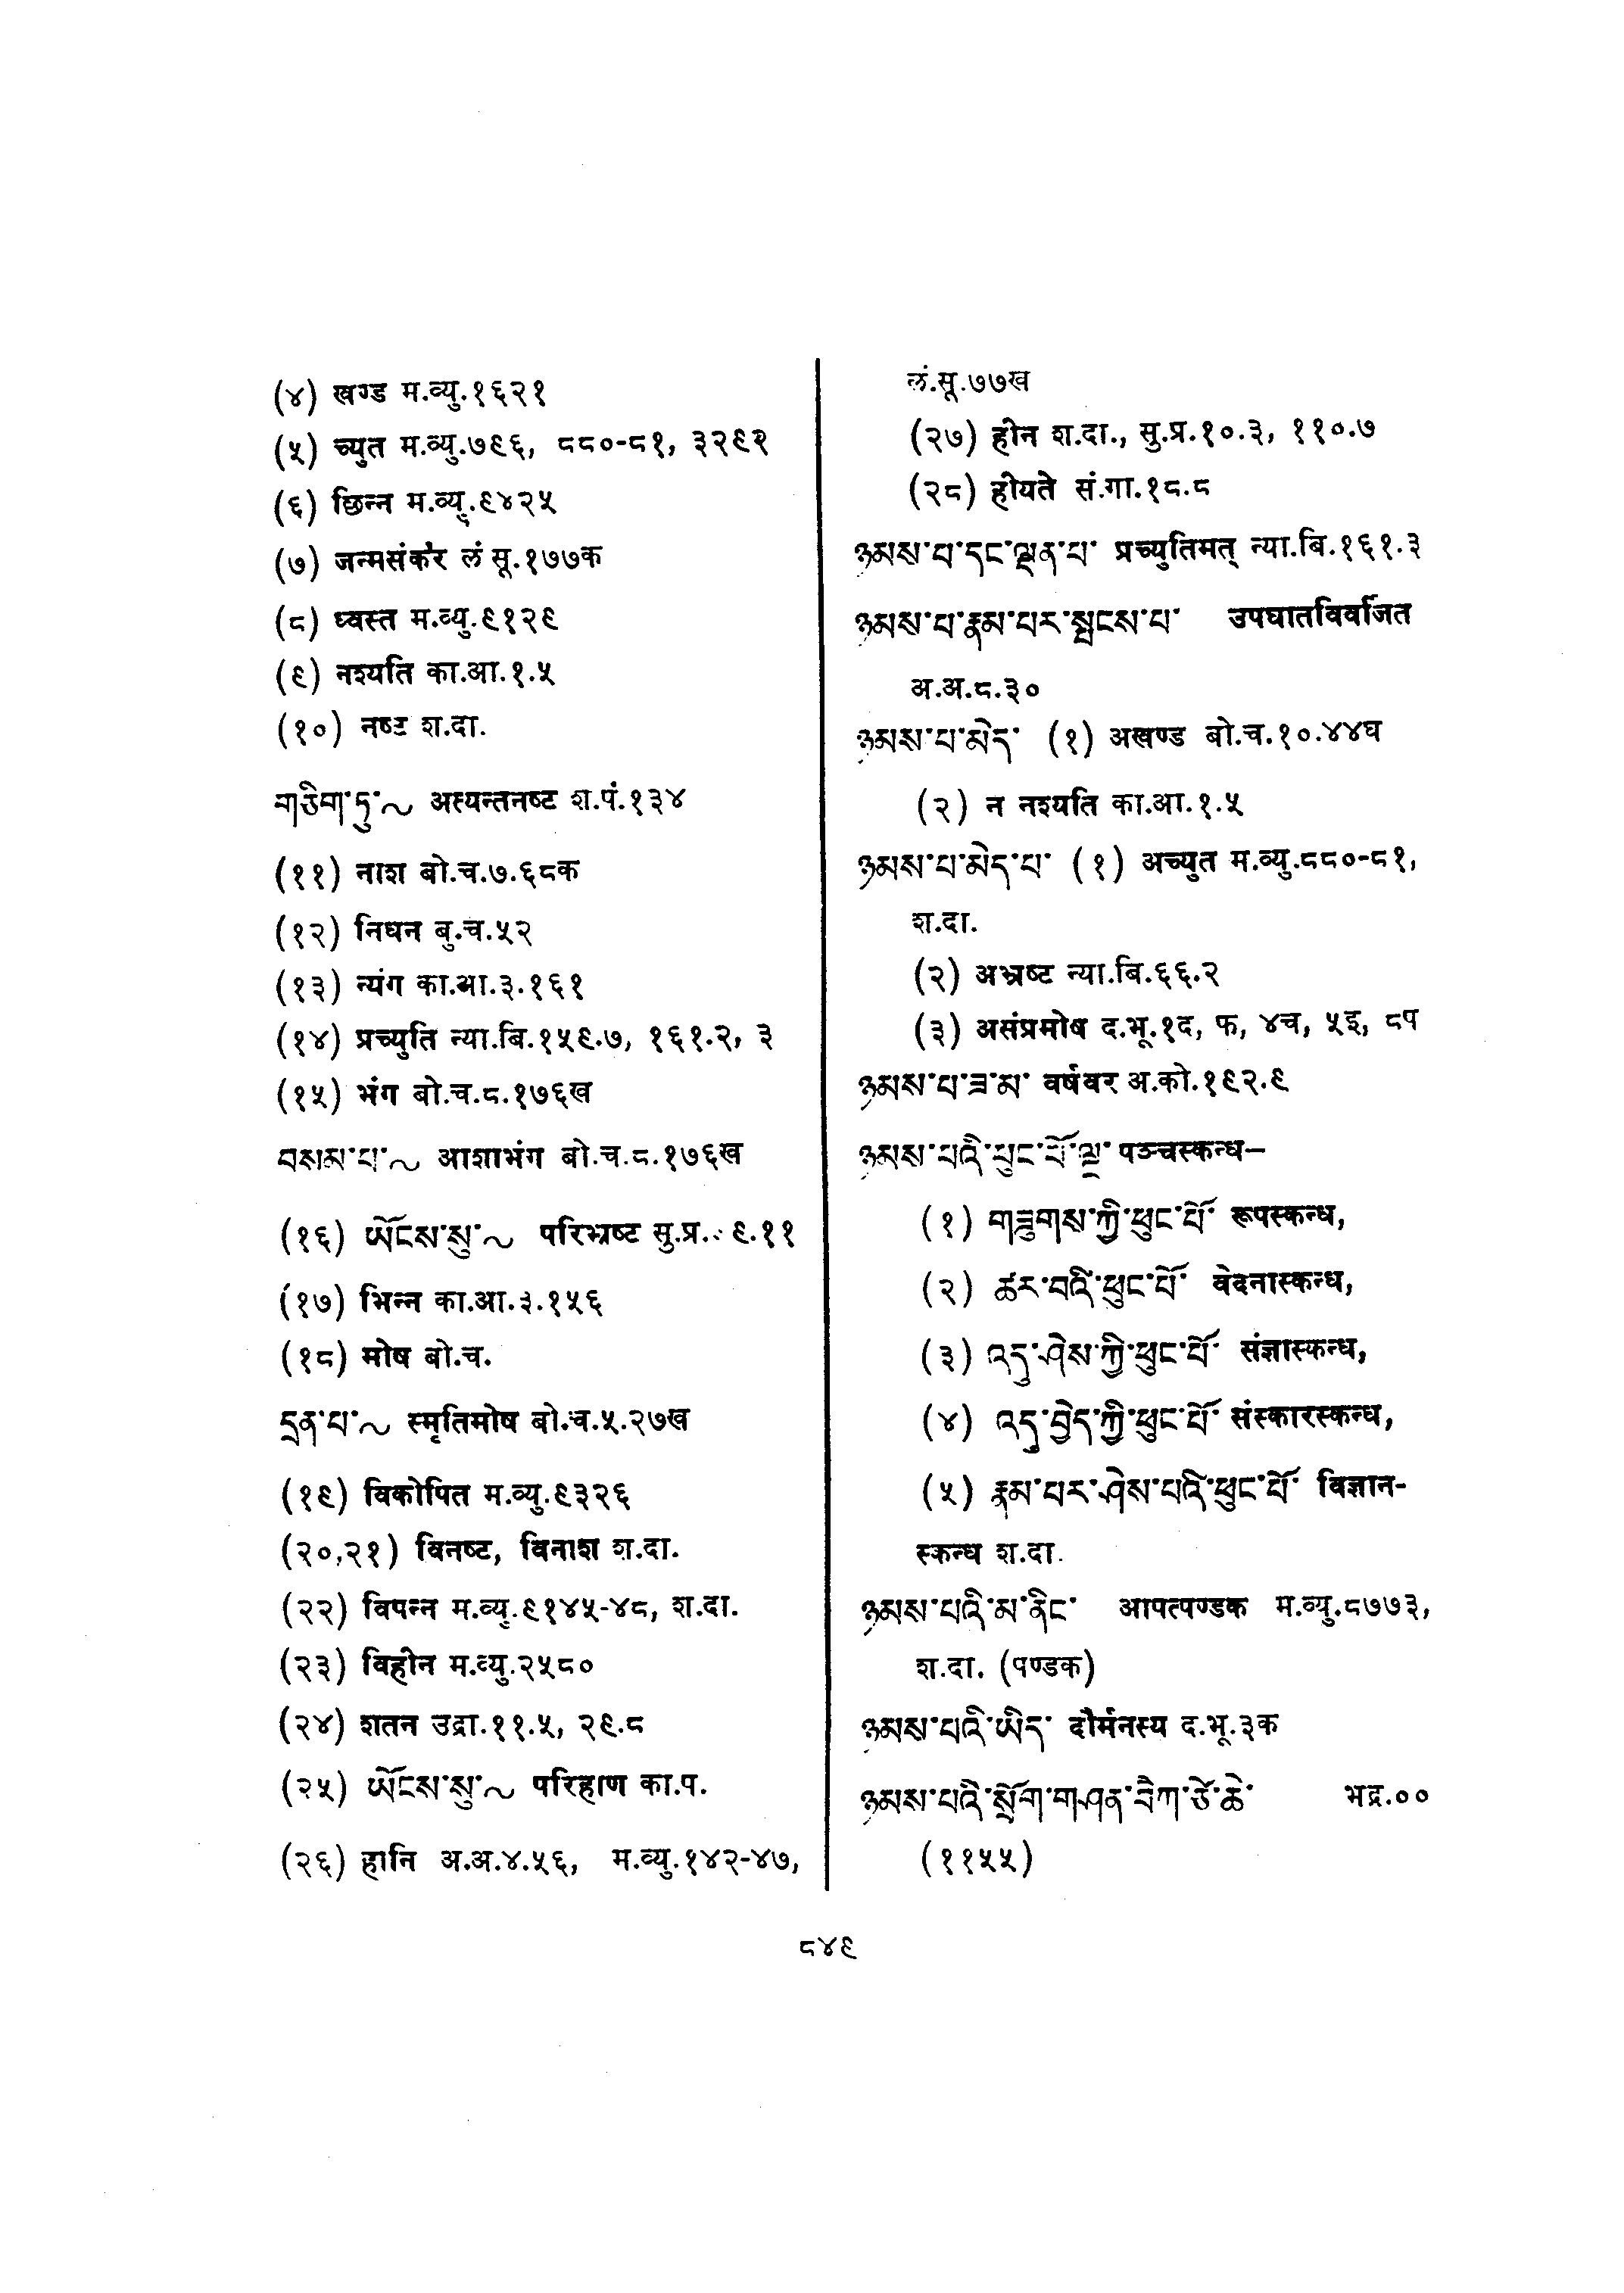 (४) खण्ड म.व्यु.१६२१
(५) च्युत म.व्यु.७९६, ८८०-८१, ३२९२
(६) छिन्न म.व्यु.९४२५
(७) जन्मसंकर लं सू.१७७क
(८) ध्वस्त म.व्यु.९१२९
(९) नश्यति का.आ.१.५
(१०) नष्ट श.दा.
གཅིག་ཏུ་~ अत्यन्तनष्ट श.पं.१३४
(११) नाश बो.च.७.६८क
(१२) निधन बु.च.५२
(१३) न्यंग का.आ.३.१६१
(१४) प्रच्युति न्या.बि.१५९.७, १६१.२, ३
(१५) भंग बो.च.८.१७६ख
བསམ་པ་~ आशाभंग बो.च.८.१७६ख
(१६) ཡོངས་སུ་~ परिभ्रष्ट सु.प्र.. ९.११
(१७) भिन्न का.आ.३.१५६
(१८) मोष बो.च.
དྲན་པ་~ स्मृतिमोष बो.च.५.२७ख
(१९) विकोपित म.व्यु.९३२६
(२०,२१) विनष्ट, विनाश श.दा.
(२२) विपन्न म.व्यु.९१४५-४८, श.दा.
(२३) विहीन म.व्यु.२५८०
(२४) शतन उद्रा.११.५, २९.८
(२५) ཡོངས་སུ་~ परिहाण का.प.
(२६) हानि अ.अ.४.५६, म.व्यु.१४२-४७,
लं.सू.७७ख
(२७) हीन श.दा., सु.प्र.१०.३, ११०.७
(२८) हीयते सं.गा.१८.८
ཉམས་པ་དང་ལྡན་པ་ प्रच्युतिमत् न्या.बि.१६१.३
ཉམས་པ་རྣམ་པར་སྤངས་པ་ उपघातविवर्जित
अ.अ.८.३०
ཉམས་པ་མེད་ (१) अखण्ड बो.च.१०.४४घ
(२) न नश्यति का.आ.१.५
ཉམས་པ་མེད་པ་ (१) अच्युत म.व्यु.८८०-८१,
श.दा.
(२) अभ्रष्ट न्या.बि.६६.२
(३) असंप्रमोष द.भू.१द, फ, ४च, ५इ, ८प
ཉམས་པ་ཟ་མ་ वर्षवर अ.को.१९२.९
ཉམས་པའི་ཕུང་པོ་ལྔ་ पञ्चस्कन्ध–
(१) གཟུགས་ཀྱི་ཕུང་པོ་ रूपस्कन्ध,
(२) ཚར་བའི་ཕུང་པོ་ वेदनास्कन्ध,
(३) འདུ་ཤེས་ཀྱི་ཕུང་པོ་ संज्ञास्कन्ध,
(४) འདུ་བྱེད་ཀྱི་ཕུང་པོ་ संस्कारस्कन्ध,
(५) རྣམ་པར་ཤེས་པའི་ཕུང་པོ་ विज्ञान-
स्कन्ध श.दा.
ཉམས་པའི་མ་ནིང་ आपत्पण्डक म.व्यु.८७७३,
श.दा. (पण्डक)
ཉམས་པའི་ཡིད་ दौर्मनस्य द.भू.३क
ཉམས་པའི་སྲོག་གཤན་ཏིཀ་ཙེ་ཆེ་ भद्र.००
(११५५)
८४९